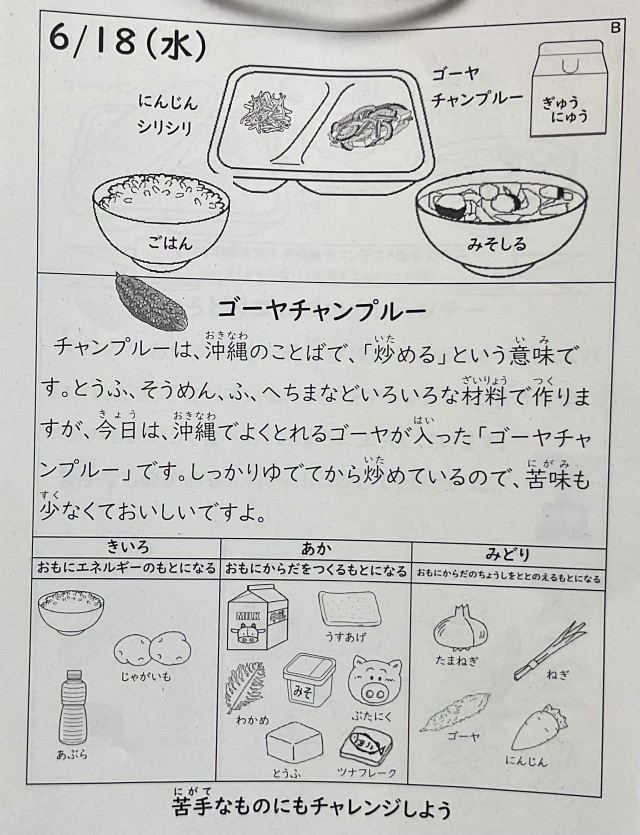 B
6/18(水)
にんじん
シリシリ
ゴーヤ
チャンプルー
ぎゅう
にゅう
ごはん
みそしる
ゴーヤチャンプルー
チャンプルーは、沖縄のことばで、「炒める」という意味で
す。とうふ、そうめん、ふ、へちまなどいろいろな材料で作りま
すが、今日は、沖縄でよくとれるゴーヤが入った「ゴーヤチャ
ンプルー」です。しっかりゆでてから炒めているので、苦味も
少なくておいしいですよ。
きいろ
おもにエネルギーのもとになる
じゃがいも
あぶら
あか
おもにからだをつくるもとになる
MILK
うすあげ
わかめ
みそ
ぶたにく
とうふ
ツナフレーク
みどり
おもにからだのちょうしをととのえるもとになる
たまねぎ
ねぎ
ゴーヤ
にんじん
苦手なものにもチャレンジしよう